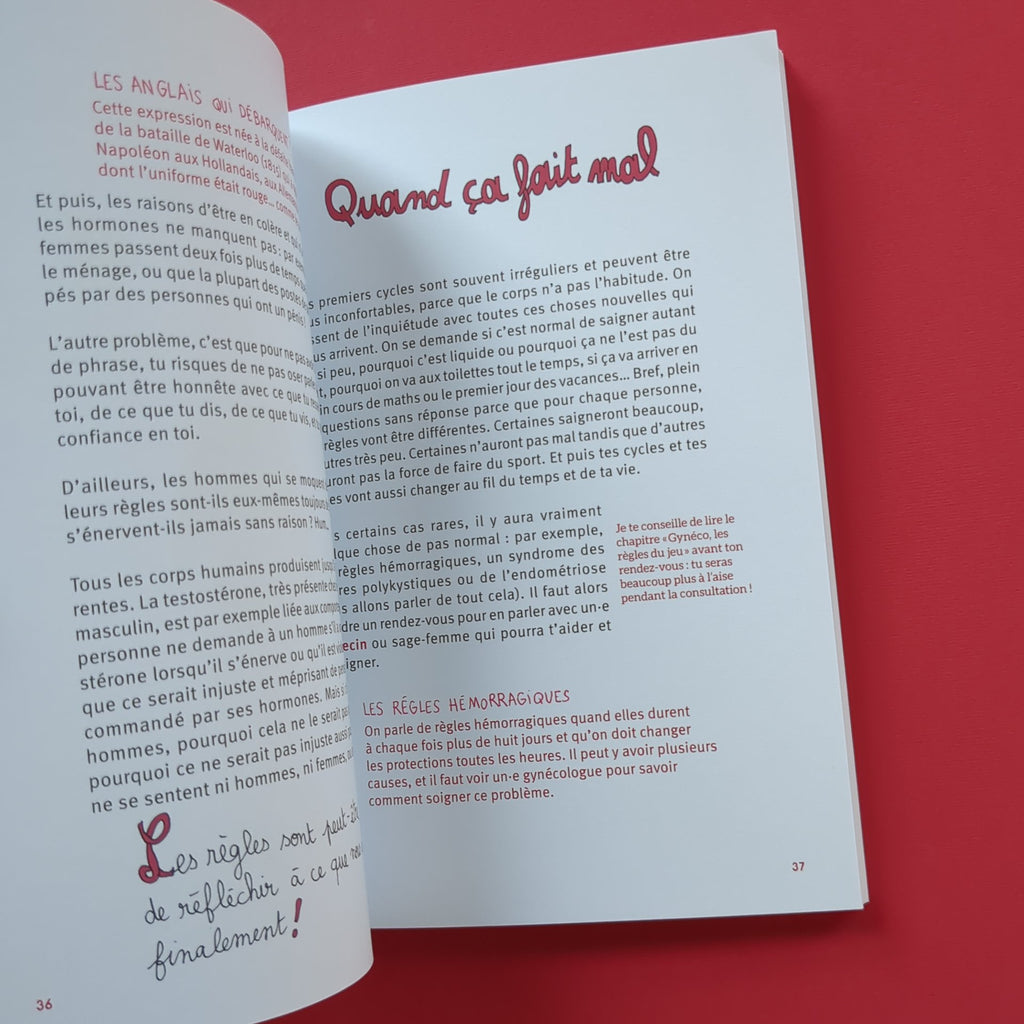 LES ANGLAIS QUI DÉBARQUENT
Cette expression est née à la
de la bataille de Waterloo (1815)
Napoléon aux Hollandais, aux
dont l'uniforme était rouge...
Et puis, les raisons d'être en colère et
les hormones ne manquent pas : par
femmes passent deux fois plus de temps
le ménage, ou que la plupart des postes
pés par des personnes qui ont un pénis !
L'autre problème, c'est que pour ne pas
de phrase, tu risques de ne pas oser
pouvant être honnête avec ce que tu
toi, de ce que tu dis, de ce que tu vis,
confiance en toi.
D'ailleurs, les hommes qui se
leurs règles sont-ils eux-mêmes
s'énervent-ils jamais sans raison ? Hum...
Tous les corps humains produisent
rentes. La testostérone, très présente
masculin, est par exemple liée aux
personne ne demande à un homme s'il
stérone lorsqu'il s'énerve ou qu'il est
que ce serait injuste et méprisant de
commandé par ses hormones. Mais si
hommes, pourquoi cela ne le serait
pourquoi ce ne serait pas injuste aussi
ne se sentent ni hommes, ni femmes,
Les règles sont
de réfléchir à ce que
finalement !
36
Quand ça fait mal
premiers cycles sont souvent irréguliers et peuvent être
inconfortables, parce que le corps n'a pas l'habitude. On
de l'inquiétude avec toutes ces choses nouvelles qui
arrivent. On se demande si c'est normal de saigner autant
si peu, pourquoi c'est liquide ou pourquoi ça ne l'est pas du
pourquoi on va aux toilettes tout le temps, si ça va arriver en
cours de maths ou le premier jour des vacances... Bref, plein
questions sans réponse parce que pour chaque personne,
règles vont être différentes. Certaines saigneront beaucoup,
très peu. Certaines n'auront pas mal tandis que d'autres
pas la force de faire du sport. Et puis tes cycles et tes
vont aussi changer au fil du temps et de ta vie.
certains cas rares, il y aura vraiment
chose de pas normal : par exemple,
règles hémorragiques, un syndrome des
polykystiques ou de l'endométriose
allons parler de tout cela). Il faut alors
un rendez-vous pour en parler avec un·e
ou sage-femme qui pourra t'aider et
Je te conseille de lire le
chapitre « Gynéco, les
règles du jeu » avant ton
rendez-vous : tu seras
beaucoup plus à l'aise
pendant la consultation !
LES RÈGLES HÉMORRAGIQUES
On parle de règles hémorragiques quand elles durent
à chaque fois plus de huit jours et qu'on doit changer
les protections toutes les heures. Il peut y avoir plusieurs
causes, et il faut voir un·e gynécologue pour savoir
comment soigner ce problème.
37